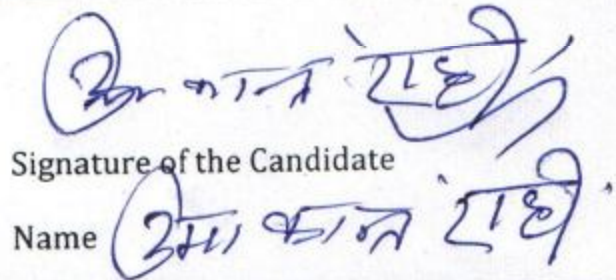 उमा कान्त राही
Signature of the Candidate
Name उमा कान्त राही